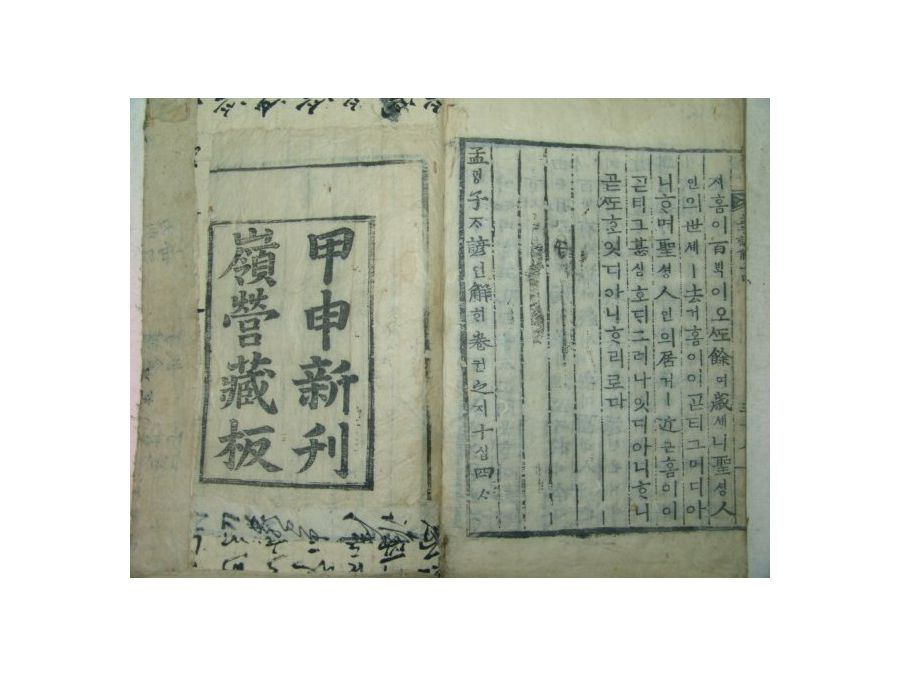 셔홈이百ᄇᆡᆨ이오ᄯᅩ餘여歲셰니聖셩人
인의世셰ㅣ去거홈이이ᄀᆞᆮ티그머디아
니ᄒᆞ며聖셩人인의居거ㅣ近근홈이이
ᄀᆞᆮ티그甚심호ᄃᆡ그러나잇디아니ᄒᆞ니
곧ᄯᅩᄒᆞᆫ잇디아니ᄒᆞ리로다
孟ᄆᆡᆼ子ᄌᆞ諺언解ᄒᆡ卷권之지十십四ᄉᆞ
甲申新刊
嶺營藏板